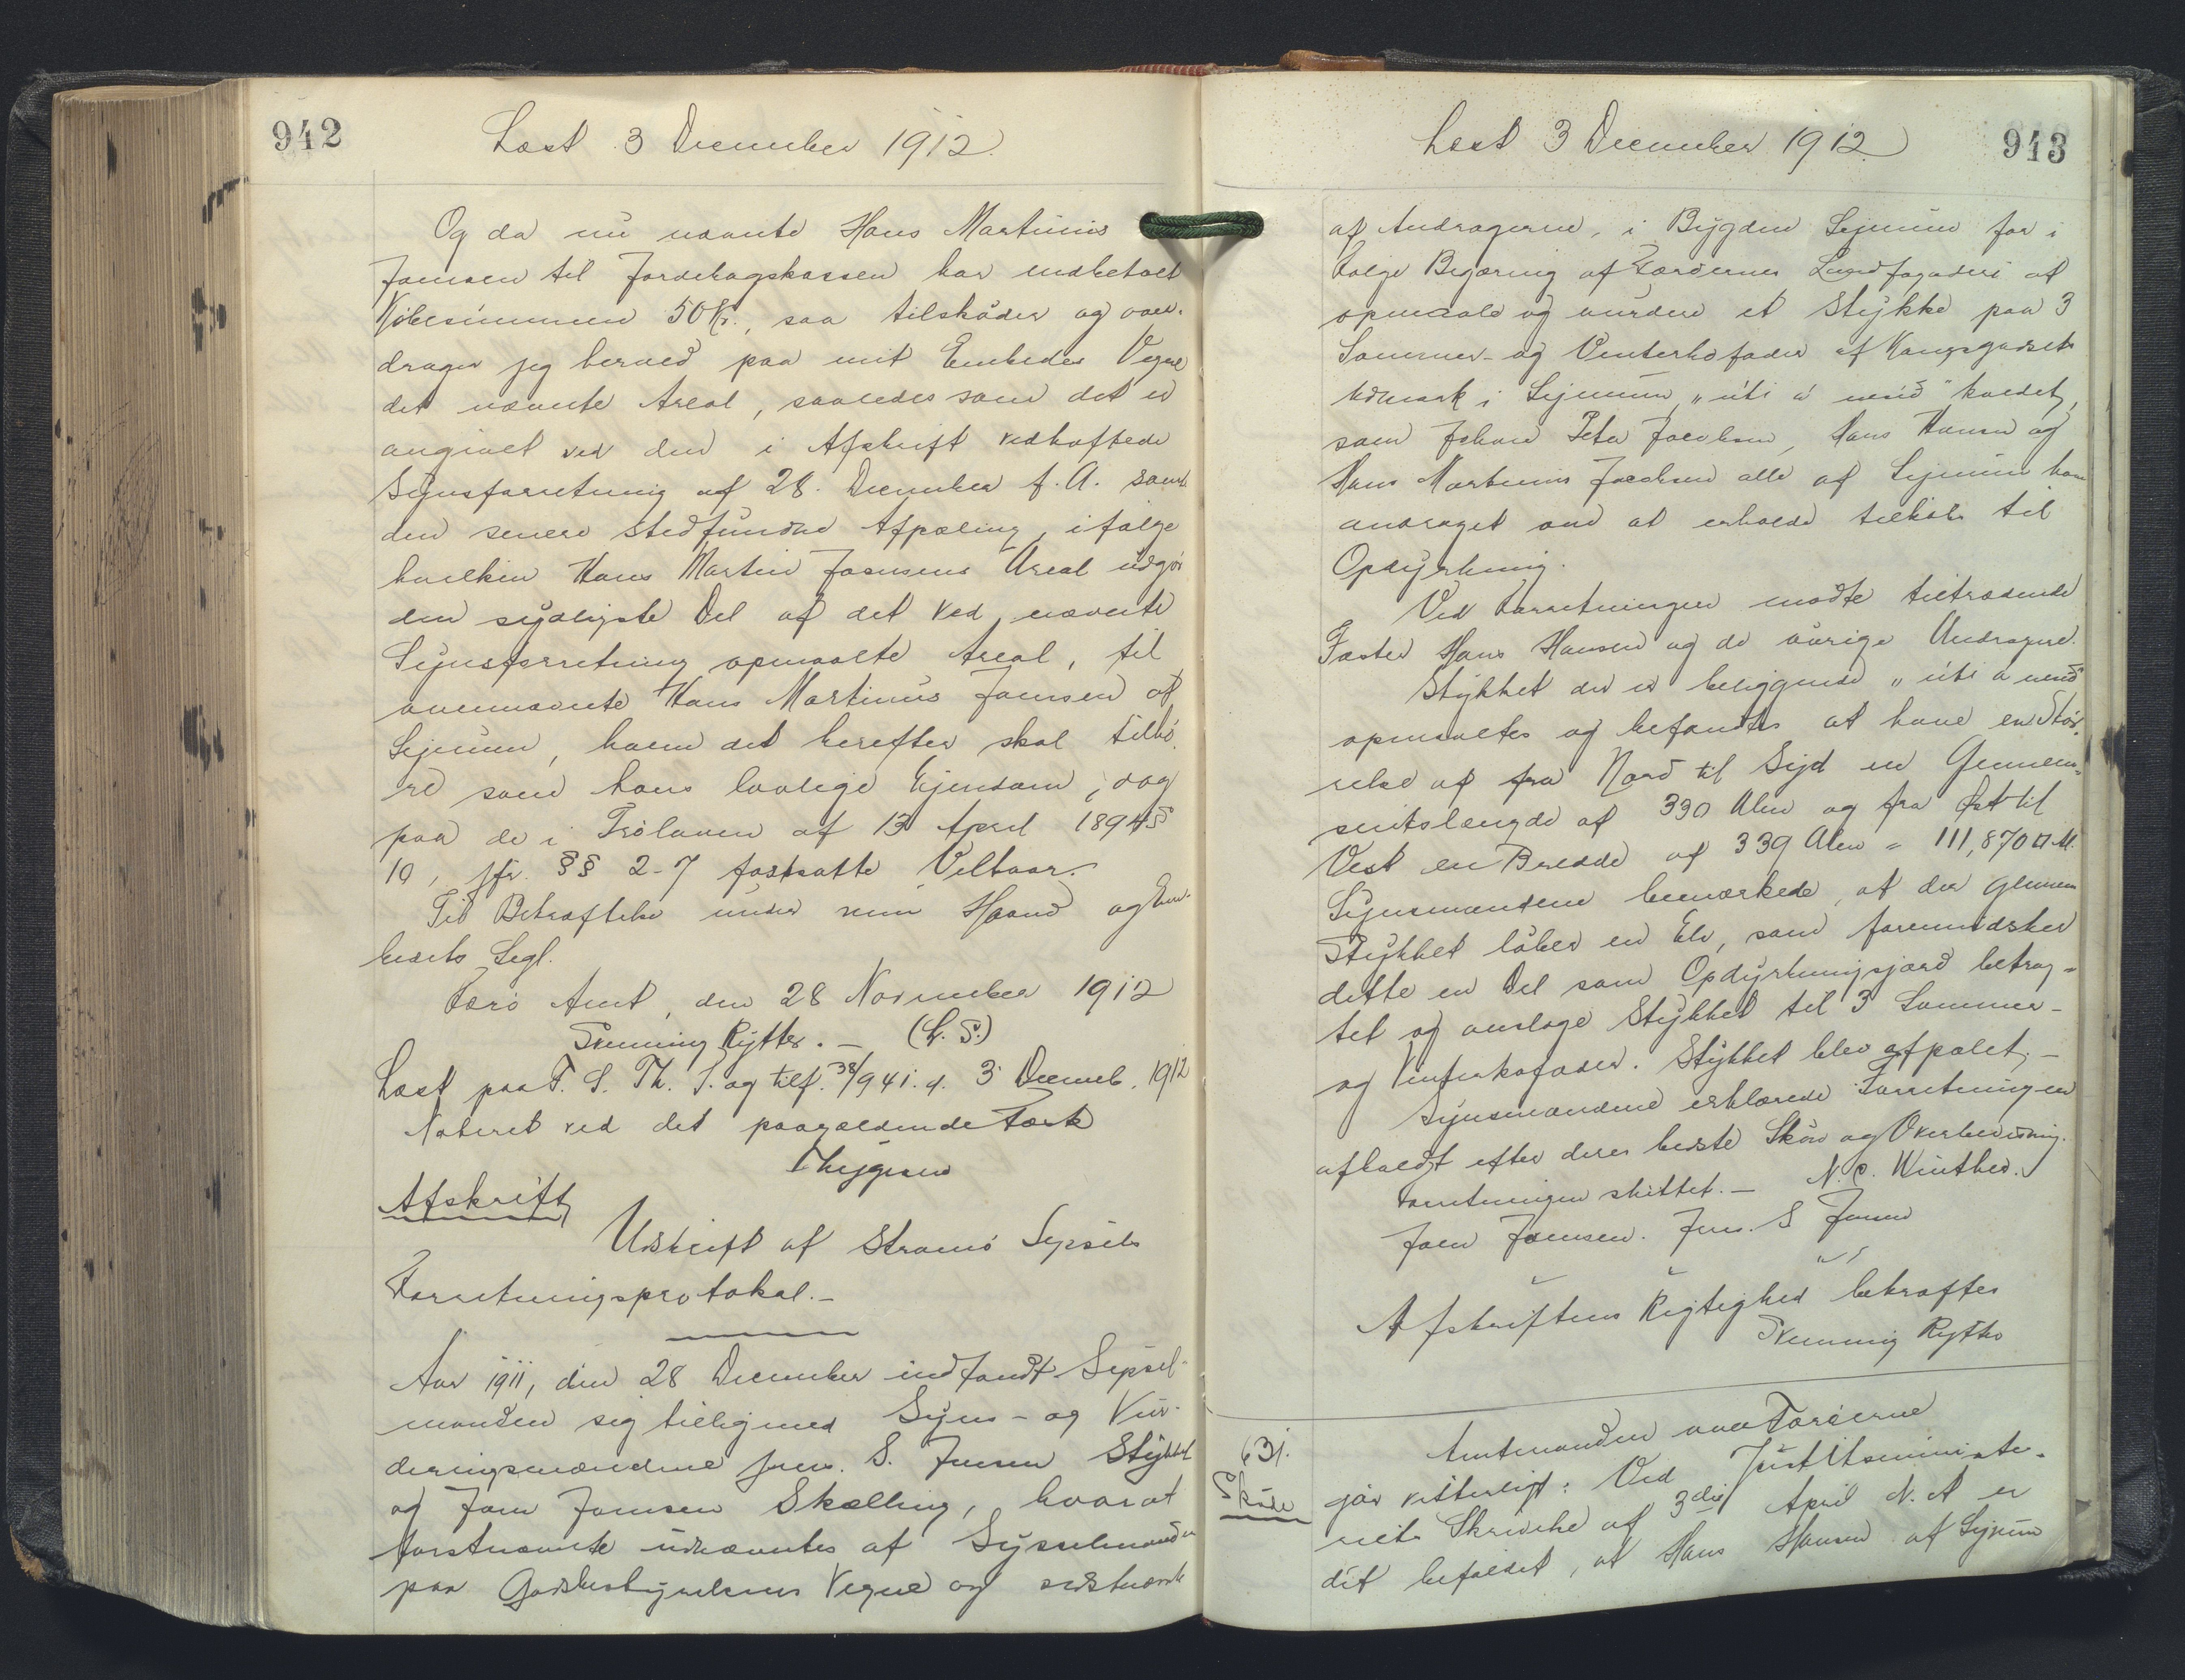 942
Læst 3 December 1912.
Og da nu nævnte Hans Martinus
Joensen til Jordebogskassen har indbetalt
Købesummen 50 Kr., saa tilskøder og over-
drager jeg herved paa mit Embedes Vegne
det nævnte Areal, saaledes som det er
angivet ved den i Afskrift vedhæftede
Synsforretning af 28. December f. A. samt
den senere stedfundne Afpæling, ifølge
hvilken Hans Martin Joensens Areal udgør
den sydligste Del af det ved nævnte
Synsforretning opmaalte Areal, til
ovennævnte Hans Martinus Joensen af
Sejnum, hvem det herefter skal tilhø-
re som hans lovlige Ejendom, dog
paa de i Frøloven af 13 April 1894 §
10, jfr. §§ 2-7 fastsatte Vilkaar.
Til Bekræftelse under min Haand og Em-
bedets Segl.
Færø Amt, den 28 November 1912
Svenning Rytter. — (L. S.)
Læst paa F. S. Th. S. og tilf. 38/941. d. 3 Decemb. 1912
Noteret ved det paagældende Fæste
Thygesen
Afskrift
Udskrift af Strømø Syssels
Forretningsprotokol. —
Aar 1911, den 28 December indfandt Syssel-
manden sig tilligemed Syns- og Vur-
deringsmændene Jens. S. Jensen Stykket
og Joen Joensen Skælling, hvoraf
førstnævnte udnævntes af Sysselmanden
paa Godsbestyrelsens Vegne og sidstnævnte
Læst 3 December 1912.
943
af Andragerne, i Bygden Sejnum for i
Følge Begæring af Færøernes Landfogderi at
opmaale og vurdere et Stykke paa 3
Sommer- og Vinterkofoder af Kongsgodsets
Udmark i Sejnum, "úti á nesið" kaldet,
som Johan Peter Jacobsen, Hans Hansen og
Hans Martinus Jacobsen alle af Sejnum have
andraget om at erholde tilkøbs til
Opdyrkning.
Ved Forretningen mødte tiltrædende
Fæster Hans Hansen og de øvrige Andragere.
Stykket der er beliggende "úti á nesið"
opmaaltes og befandtes at have en Stør-
relse af fra Nord til Syd en Gennem-
snitslængde af 330 Alen og fra Øst til
Vest en Bredde af 339 Alen = 111,870 □ Al.
Synsmændene bemærkede, at der gennem
Stykket løber en Elv, som formindsker
dette en Del som Opdyrkningsjord betrag-
tet og anslage Stykket til 3 Sommer-
og Vinterkofoder. Stykket blev afpælet. —
Synsmændene erklærede Forretningen
afholdt efter deres bedste Skøn og Overbevisning.
Forretningen sluttet. — N. C. Winther.
Joen Joensen. Jens. S Jensen
Afskriftens Rigtighed bekræftes
Svenning Rytter
631.
Skøde
Amtmanden over Færøerne
gør vitterligt: Ved Justitsministe-
riets Skrivelse af 3die April d. A er
det befalet, at Hans Hansen af Sejnum